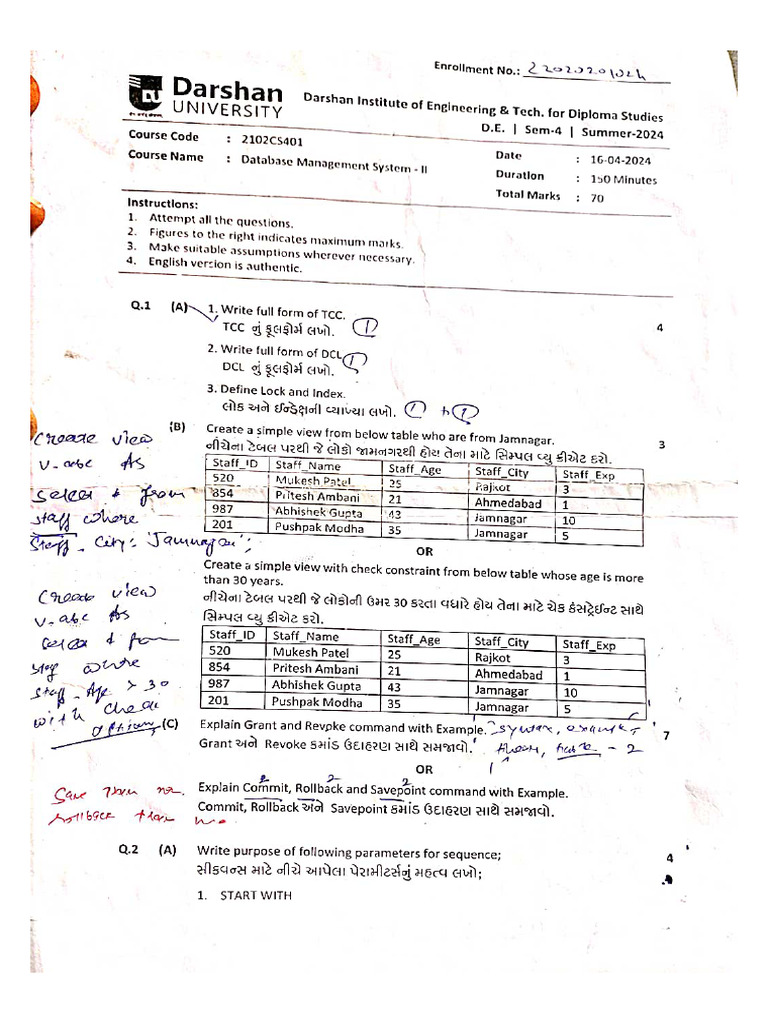 Enrollment No.:
Darshan
UNIVERSITY
Darshan Institute of Engineering & Tech. for Diploma Studies
D.E. | Sem-4 | Summer-2024
Course Code : 2102CS401
Date : 16-04-2024
Course Name : Database Management System - II
Duration : 150 Minutes
Total Marks : 70
Instructions:
1. Attempt all the questions.
2. Figures to the right indicates maximum marks.
3. Make suitable assumptions wherever necessary.
4. English version is authentic.
Q.1 (A) 1. Write full form of TCC. 1 4
TCC નું ફૂલફોર્મ લખો.
2. Write full form of DCL 1
DCL નું ફૂલફોર્મ લખો.
3. Define Lock and Index.
લોક અને ઈન્ડેક્ષની વ્યાખ્યા લખો. 1 + 1
(B) Create a simple view from below table who are from Jamnagar. 3
નીચેના ટેબલ પરથી જે લોકો જામનગરથી હોય તેના માટે સિમ્પલ વ્યુ ક્રીએટ કરો.
Staff_ID Staff_Name Staff_Age Staff_City Staff_Exp
520 Mukesh Patel 25 Rajkot 3
854 Pritesh Ambani 21 Ahmedabad 1
987 Abhishek Gupta 43 Jamnagar 10
201 Pushpak Modha 35 Jamnagar 5
Create view
v-abc As
select * from
staff where
Staff_City = 'Jamnagar';
OR
Create a simple view with check constraint from below table whose age is more
than 30 years.
નીચેના ટેબલ પરથી જે લોકોની ઉમર 30 કરતા વધારે હોય તેના માટે ચેક કંસટ્રેઈન્ટ સાથે
સિમ્પલ વ્યુ ક્રીએટ કરો.
Staff_ID Staff_Name Staff_Age Staff_City Staff_Exp
520 Mukesh Patel 25 Rajkot 3
854 Pritesh Ambani 21 Ahmedabad 1
987 Abhishek Gupta 43 Jamnagar 10
201 Pushpak Modha 35 Jamnagar 5
Create view
v-abc As
select * from
where
staff_Age > 30
with check
option;
(C) Explain Grant and Revoke command with Example. syntax, example 7
Grant અને Revoke કમાંડ ઉદાહરણ સાથે સમજાવો. - 2
OR
2 2 2
Explain Commit, Rollback and Savepoint command with Example.
Commit, Rollback અને Savepoint કમાંડ ઉદાહરણ સાથે સમજાવો.
rollback
Q.2 (A) Write purpose of following parameters for sequence; 4
સીકવન્સ માટે નીચે આપેલા પેરામીટર્સનું મહત્વ લખો;
1. START WITH